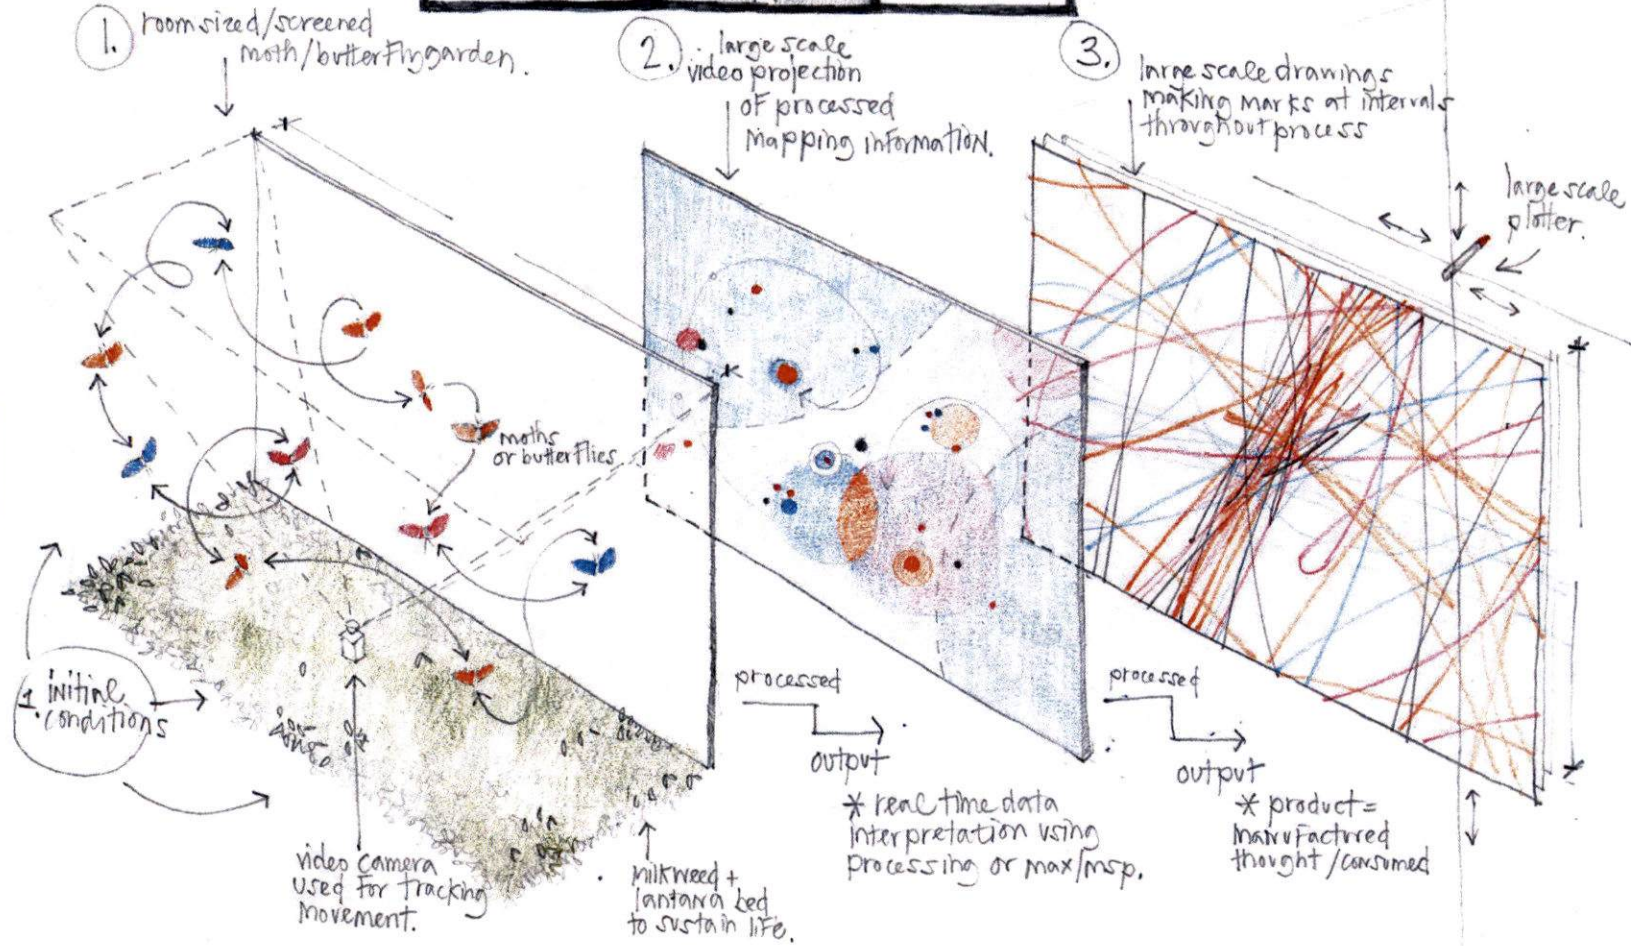 1. roomsized/screened
moth/butterflygarden.
2. large scale
video projection
of processed
mapping information.
3. large scale drawings
making marks at intervals
throughout process
large scale
plotter.
moths
or butterflies
1. initial
conditions
video camera
used for tracking
movement.
milkweed +
lantana bed
to sustain life.
processed
output
* real time data
interpretation using
processing or max/msp.
processed
output
* product =
manufactured
thought/consumed